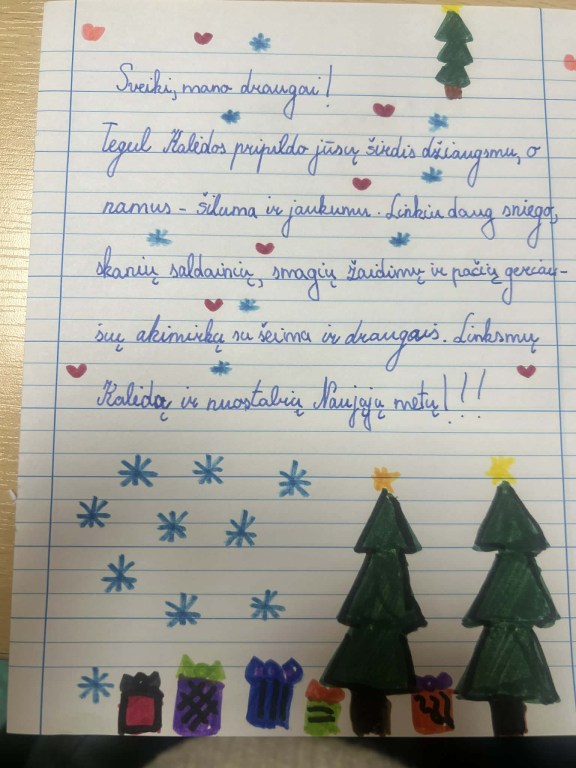 Sveiki, mano draugai!
Tegul Kalėdos pripildo jūsų širdis džiaugsmu, o
namus - šiluma ir jaukumu. Linkiu daug sniego,
skanių saldainių, smagių žaidimų ir pačių geriau-
sių akimirkų su šeima ir draugais. Linksmų
Kalėdų ir nuostabių Naujųjų metų!!!